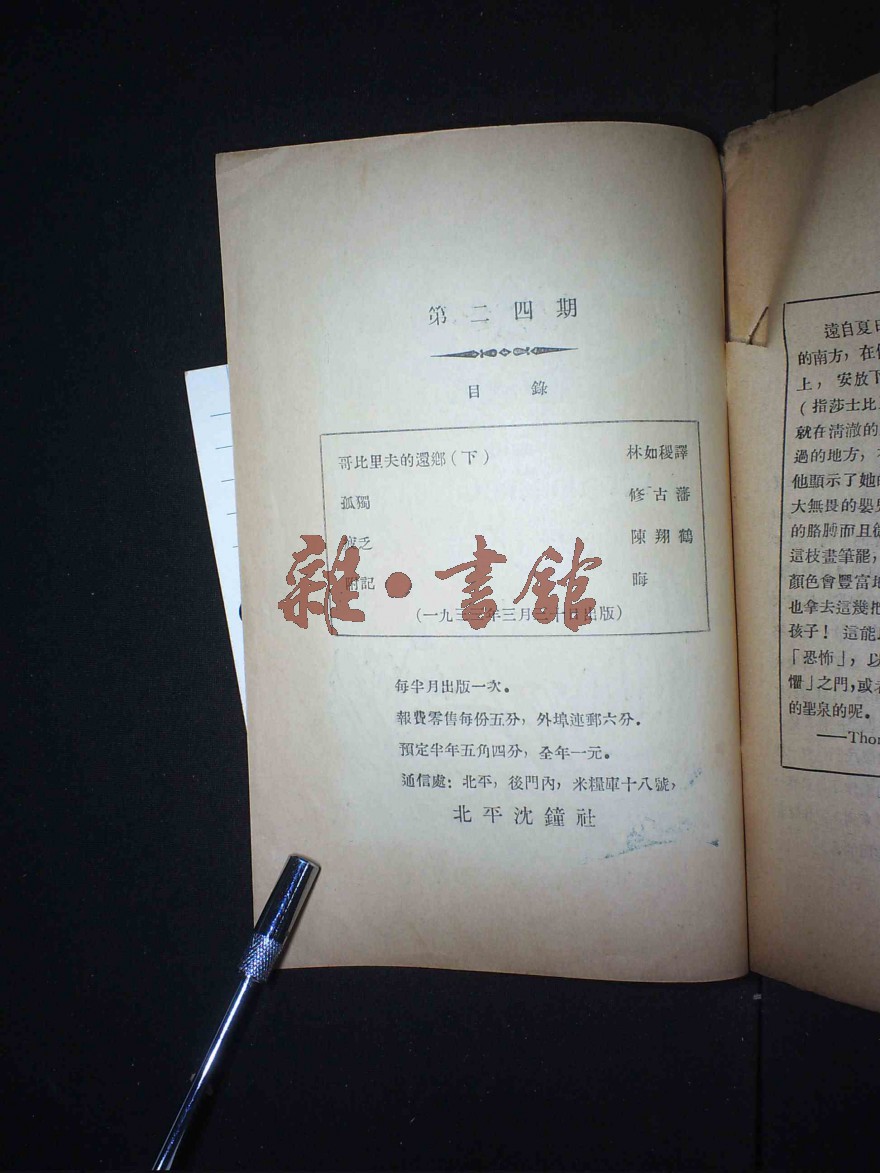 第二四期
目錄
哥比里夫的還鄉(下) 林如稷譯
孤獨 修古藩
乏 陳翔鶴
附記 晦
(一九三三年三月三十日出版)
每半月出版一次。
報費零售每份五分,外埠連郵六分.
預定半年五角四分,全年一元。
通信處:北平,後門內,米糧庫十八號,
北平沈鐘社
雜·書館
遠自夏日
的南方,在
上,安放下
(指莎士比
就在清澈的
過的地方,
他顯示了她的
大無畏的嬰
的胳膊而且
這枝畫筆罷,
顏色會豐富地
也拿去這幾把
孩子!這能
「恐怖」,以
懼」之門,或者
的聖泉的呢。
——Thom